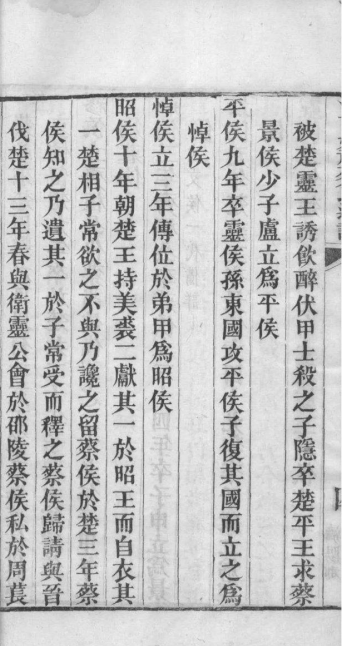 被楚靈王誘飲醉伏甲士殺之子隱卒楚平王求蔡
景侯少子廬立爲平侯
平侯九年卒靈侯孫東國攻平侯子復其國而立之爲
悼侯
悼侯立三年傳位於弟甲爲昭侯
昭侯十年朝楚王持美裘二獻其一於昭王而自衣其
一楚相子常欲之不與乃讒之留蔡侯於楚三年蔡
侯知之乃遺其一於子常受而釋之蔡侯歸請與晉
伐楚十三年春與衛靈公會於邵陵蔡侯私於周萇